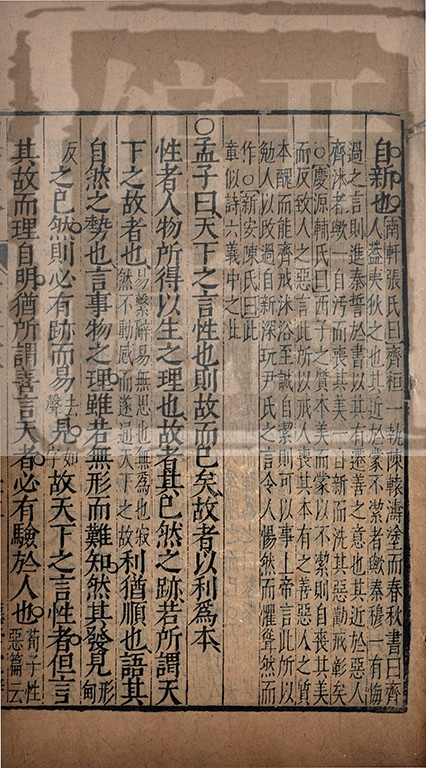 自新也南軒張氏曰齊桓一執陳轅濤塗而春秋書曰齊
人葢夷狄之也其近於蒙不潔者歟秦穆一有悔
過之言則進秦誓於書以其有遷善之意也其近於惡人
齊沐者歟一自汚而喪其美一自新而洗其惡勸戒彰矣
○慶源輔氏曰西子之質本美而蒙以不潔則自喪其美
而反致人之惡言此所以戒人喪其本有之善惡人之質
本醜而能齊戒沐浴至誠自潔則可以事上帝言此所以
勉人以改過自新深玩尹氏之言令人惕然而懼聳然而
作○新安陳氏曰此
章似詩六義中之比
○孟子曰天下之言性也則故而已矣故者以利爲本
性者人物所得以生之理也故者其已然之跡若所謂天
下之故者也易繫辭易無思也無為也寂然不動感而遂通天下之故利猶順也語其
自然之勢也言事物之理雖若無形而難知然其發見形甸
反之已然則必有跡而易去聲見如字故天下之言性者但言
其故而理自明猶所謂善言天者必有驗於人也荀子性惡篇云